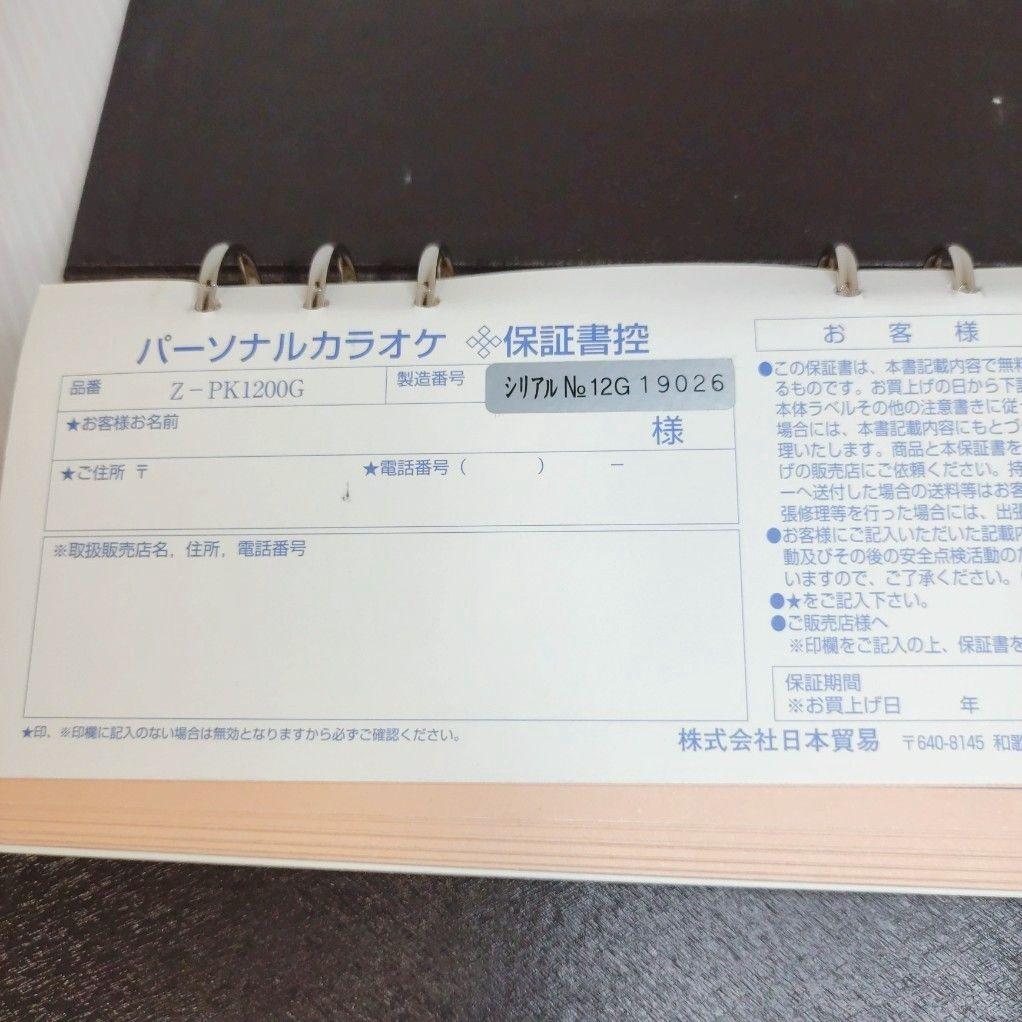 パーソナルカラオケ 保証書控
品番 Z-PK1200G 製造番号 シリアル№12G 19026
★お客様お名前 様
★ご住所 〒 ★電話番号( ) −
※取扱販売店名，住所，電話番号
★印、※印欄に記入のない場合は無効となりますから必ずご確認ください。
お客様
●この保証書は、本書記載内容で無料
るものです。お買上げの日から下記
本体ラベルその他の注意書きに従っ
場合には、本書記載内容にもとづ
理いたします。商品と本保証書を
げの販売店にご依頼ください。持
ーへ送付した場合の送料等はお客
張修理等を行った場合には、出張
●お客様にご記入いただいた記載内
動及びその後の安全点検活動のた
いますので、ご了承ください。
●★をご記入下さい。
●ご販売店様へ
※印欄をご記入の上、保証書を
保証期間
※お買上げ日 年
株式会社日本貿易 〒640-8145 和歌